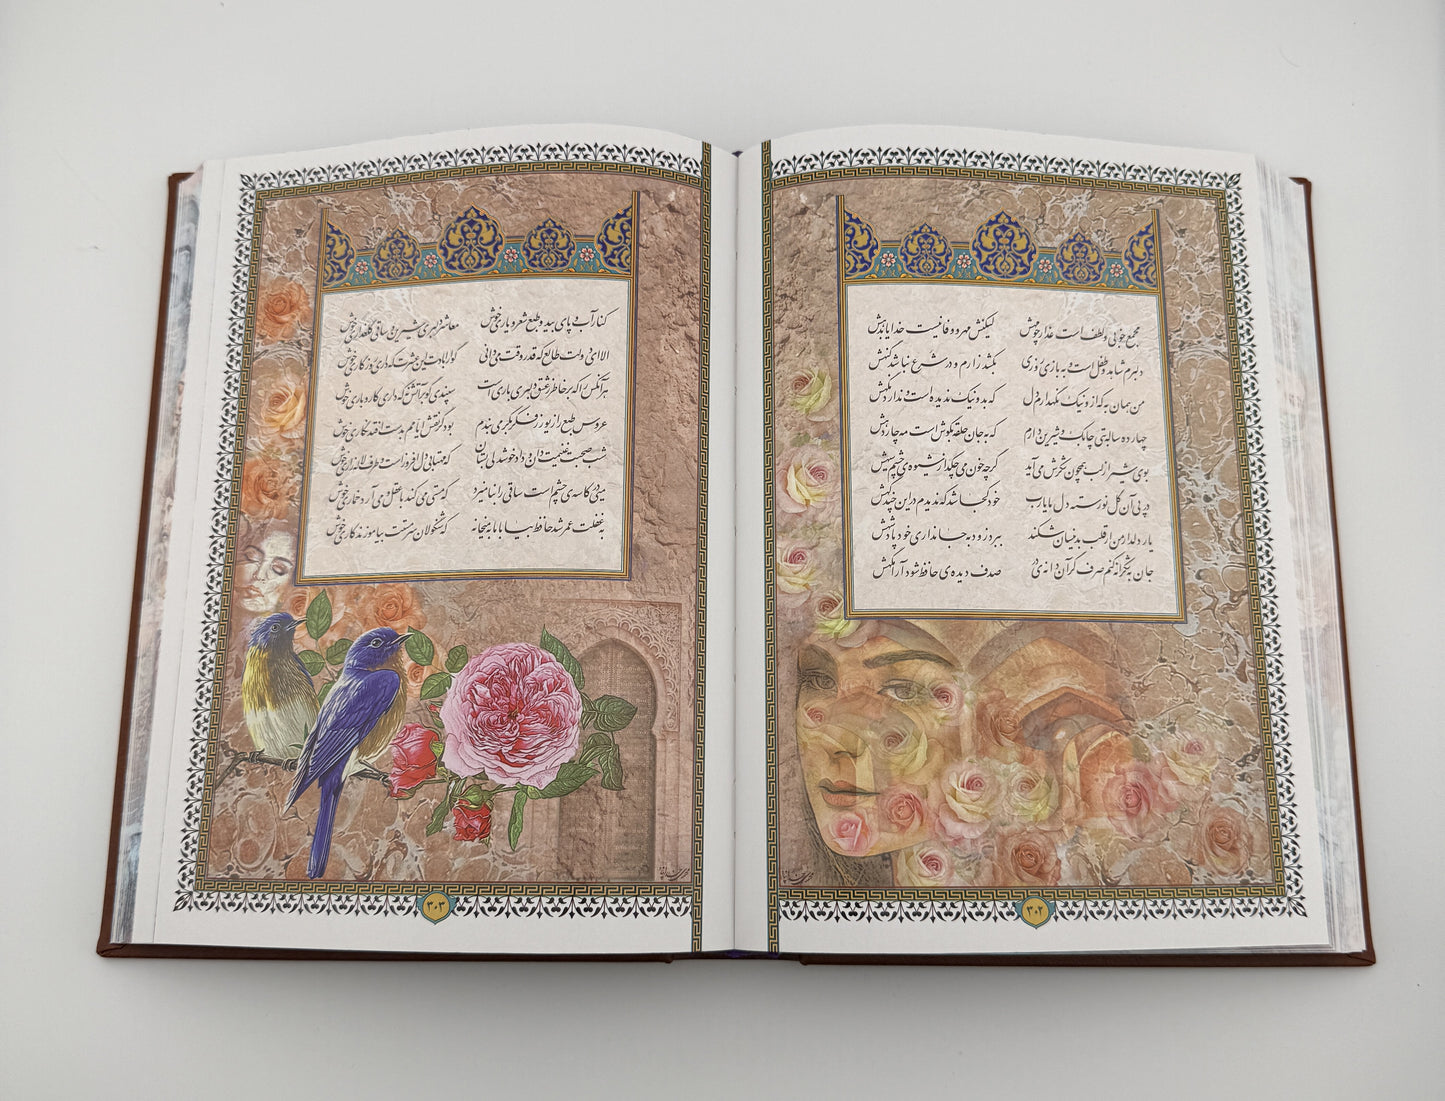 مجمع خوبی و لطف است عذار چو مهش لیکنش مهر و وفا نیست خدایا بدهش
دلبرم شاهد و طفل است و به بازی روزی بکشد زارم و در شرع نباشد گنهش
من همان به که از او نیک نگه دارم دل که بد و نیک ندیده است و ندارد نگهش
چهارده ساله بتی چابک و شیرین دارم که به جان حلقه به گوش است مه چاردهش
بوی شیر از لب همچون شکرش می آید گرچه خون می چکد از شیوه ی چشم سیهش
در پی آن گل نورسته دل ما یا رب خود کجا شد که ندیدم در این چند گهش
یار دلدار من ار قلب بدینسان شکند ببرد زود به جانداری خود پادشهش
جان به شکرانه کنم صرف گر آن دانه ی در صدف دیده ی حافظ شود آرامگهش
۳۰۲
کنار آب و پای بید و طبع شعر و یاری خوش معاشر دلبری شیرین و ساقی گلعذاری خوش
الا ای دولت طالع که قدر وقت می دانی گوارا بادت این عشرت که داری روزگاری خوش
هر آنکس را که بر خاطر ز عشق دلبری باری است سپندی گو بر آتش نه که داری کار و باری خوش
عروس طبع را زیور ز فکر بکر می بندم بود کز نقش ایامم به دست افتد نگاری خوش
شب صحبت غنیمت دان و داد خوشدلی بستان که مهتابی دل افروز است و طرف لاله زاری خوش
میی در کاسه ی چشم است ساقی را بنامیزد که مستی می کند با عقل و می آرد خماری خوش
به غفلت عمر شد حافظ بیا با ما به میخانه که شنگولان سرمستت بیاموزند کاری خوش
۳۰۳